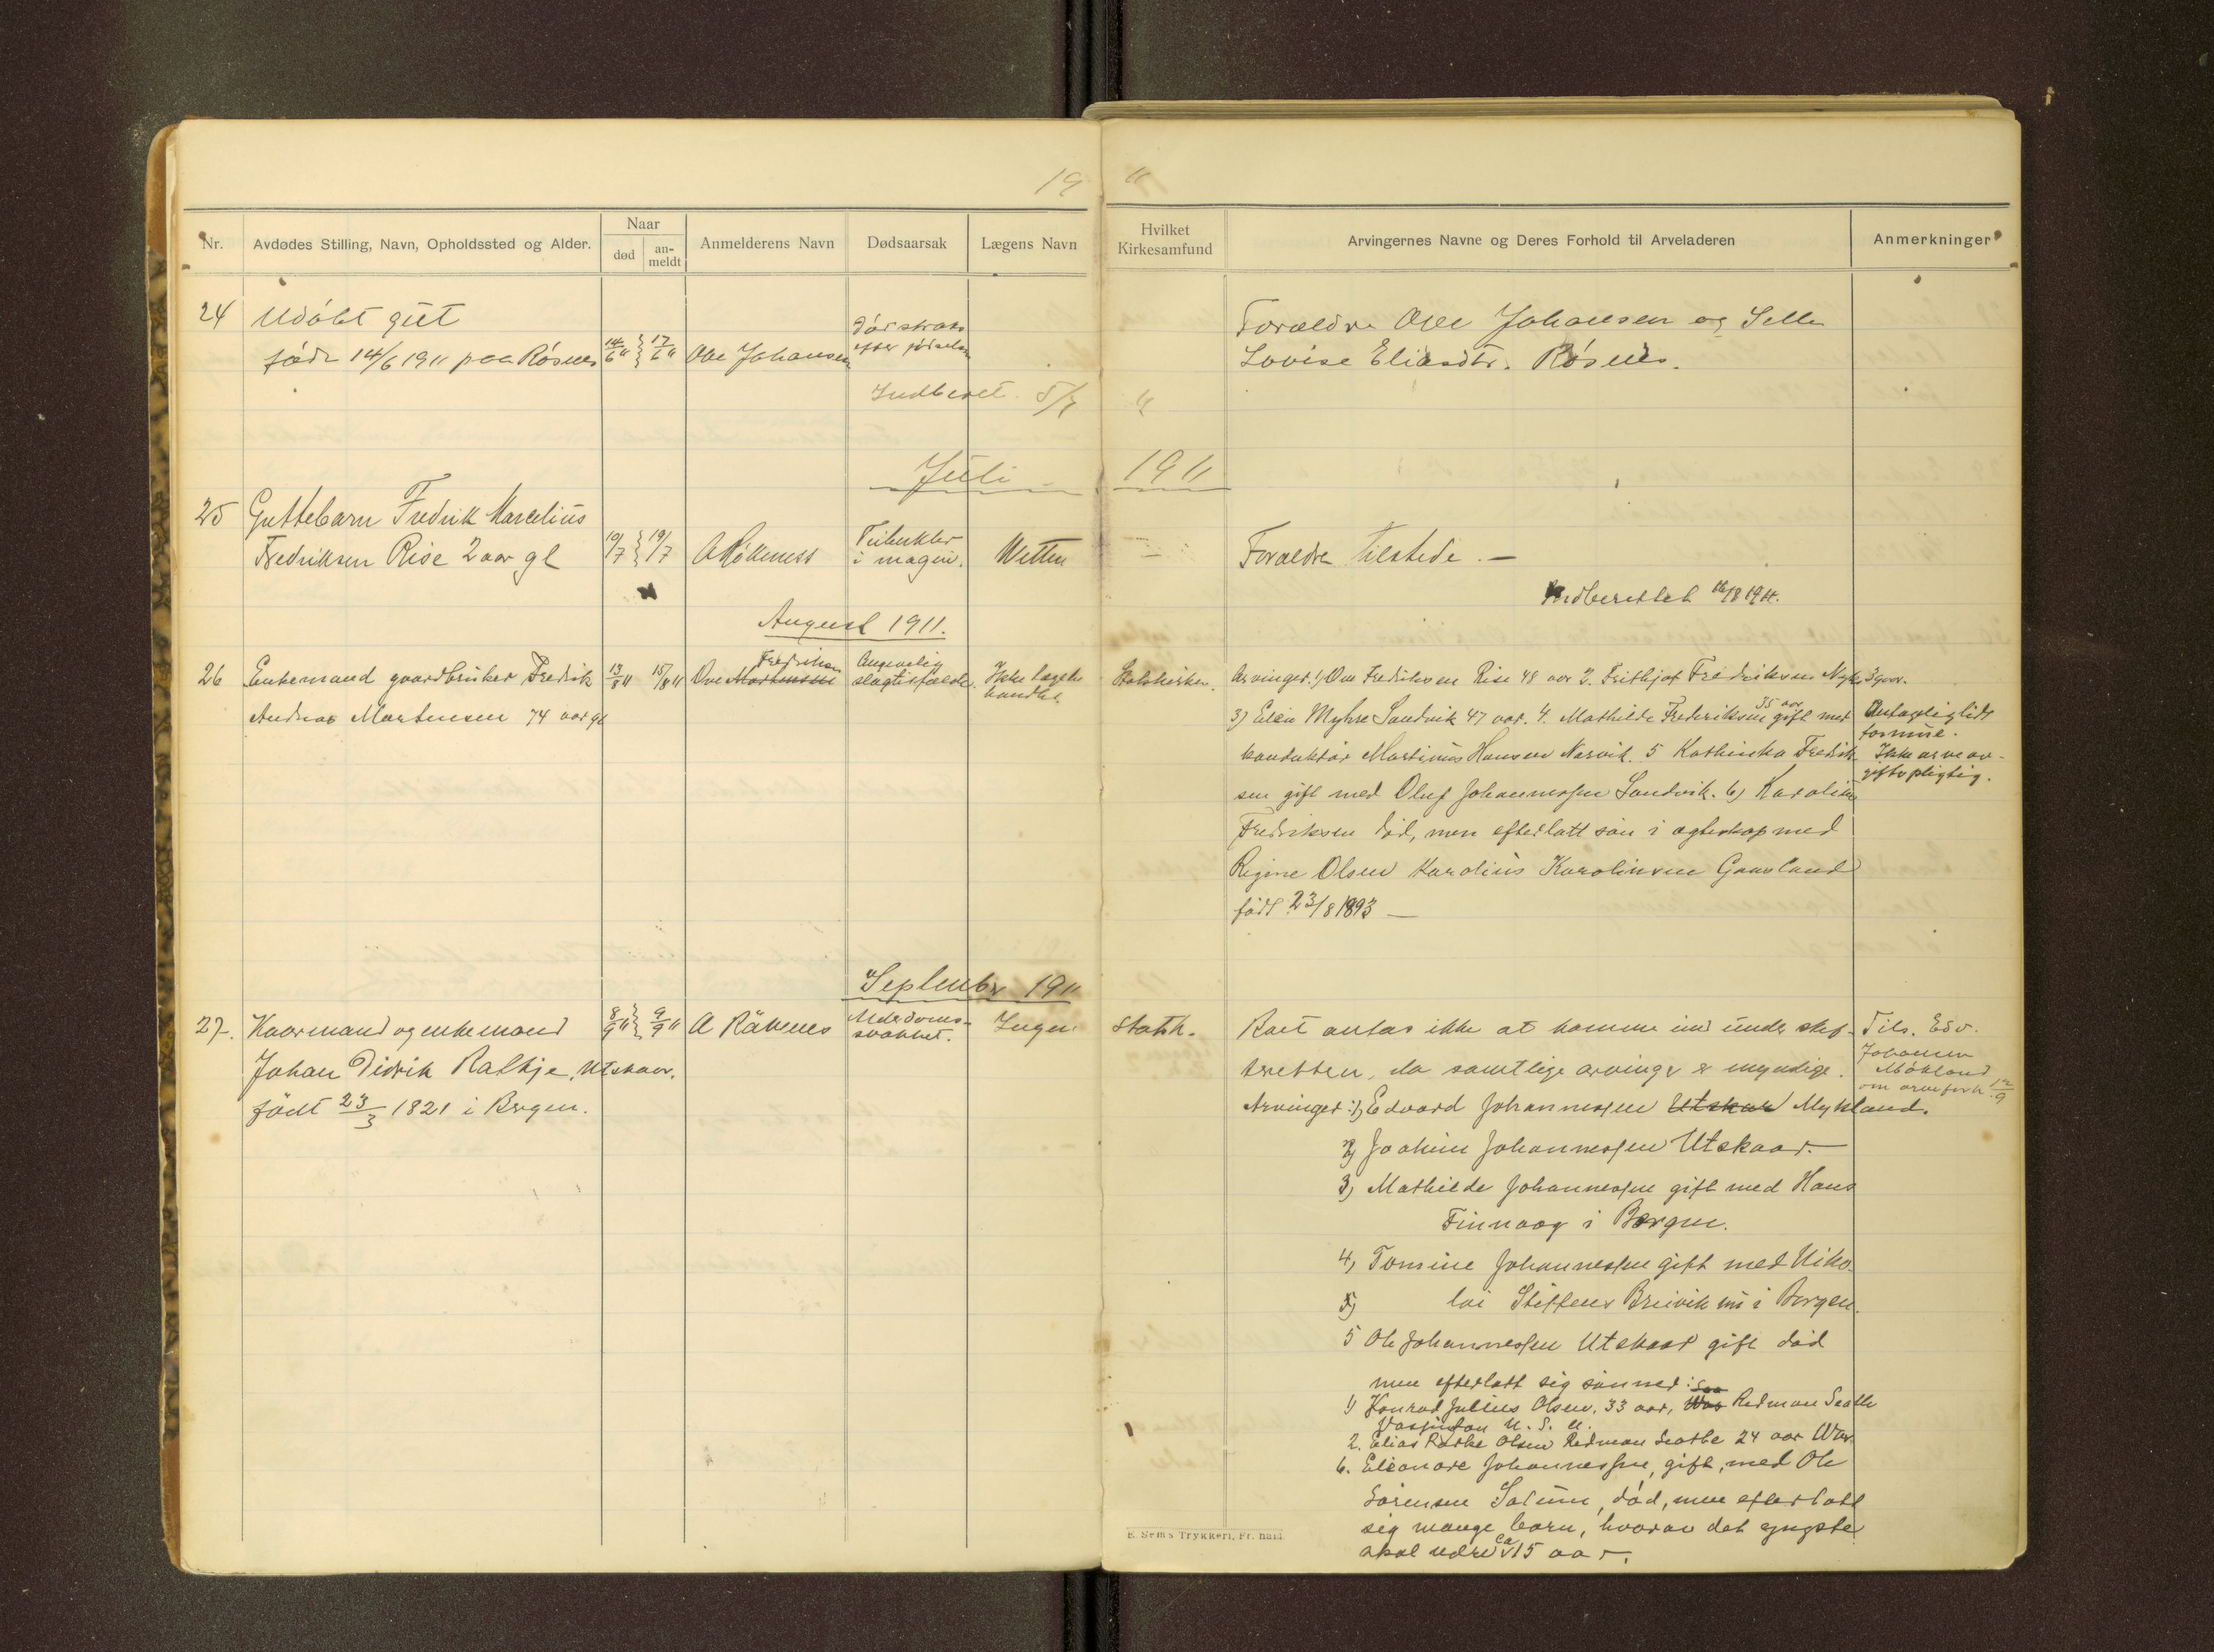 19 11
Nr.
Avdødes Stilling, Navn, Opholdssted og Alder.
Naar
død
an-
meldt
Anmelderens Navn
Dødsaarsak
Lægens Navn
Hvilket
Kirkesamfund
Arvingernes Navne og Deres Forhold til Arveladeren
Anmerkninger
24 Udöbt gut
födt 14/6 1911 paa Rösnes
14/6 11 } 17/6 11
Ove Johansen
Dör straks
efter födselen
Forældre Ove Johansen og
Lovise Eliasdtr. Rösnes.
Indberet. 5/7 11
Juli 1911
25 Guttebarn Fredrik Marcelius
Fredriksen Rise 2 aar gl
10/7 } 19/7
A Rökeness
Tuberkler
i magen.
Wetten
—
Forældre tilstede. —
Indberettet 16/8 1911.
August 1911.
26 Enkemand gaardbruker Fredrik
Andreas Mortensen 74 aar gl
13/8 11 15/8 11
Ove Mortensen Fredriksen
Angivelig
slagtilfælde.
Ikke læge be
handlet.
Statskirken.
Arvinger. 1) Ove Fredriksen Rise 48 aar 2. Frithjof Fredriksen Myhre 39 aar.
3) Elen Myhre Sandvik 47 aar. 4. Mathilde Frederiksen 35 aar gift med
konduktör Martinus Hansen Narvik. 5 Kathinka Fredrik
sen gift med Oluf Johannessen Sandvik. 6) Karolius
Fredriksen död, men efterlatt sön i ægteskap med
Regine Olsen Karolius Karoliussen Gausland
födt 23/8 1893 —
Antagelig lidt
formue.
Ikke arveav-
giftspligtig.
September 1911
27. Kaarmand og enkemand
Johan Didrik Ratkje, Utskaar.
födt 23/3 1821 i Bergen.
8/9 11 } 9/9 11
A Rökenes
Alderdoms-
svakhet.
Ingen
Statsk.
Boet antas ikke at komme ind under skif-
teretten, da samtlige arvinger er myndige.
Arvinger: 1) Edvard Johannessen Utskar Mykland.
2) Joakim Johannessen Utskaar.
3) Mathilde Johannessen gift med Hans
Finnaag i Bergen.
4) Tomine Johannessen gift med Niko-
5) lai Steffens Breivik nu i Bergen.
5 Ole Johannessen Utskaar gift död
men efterlatt sig sönner:
1) Konrad Julius Olsen, 33 aar, Was Redman Seatle
Vasjinton U. S. A.
2. Elias Ratke Olsen Redman Seatle 24 aar Was
6. Eleonore Johannessen, gift, med Ole
Sörensen, död, men efterlatt
sig mange barn, hvorav det yngste
skal være ca 15 aar.
Tils. Edv.
Johannessen
Mökland
om arveforh. 12/9
E. Sems Trykkeri, Fr. hald